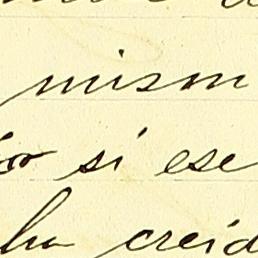 mism
si ese
ha creid